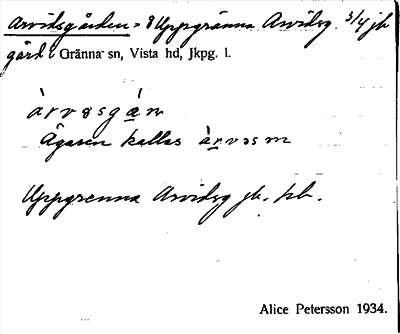 Arvidsgården = 8 Uppgränna Arvidsg. 3/4 jb
gård i Gränna sn, Vista hd, Jkpg. l.
àrvəsgán
Ägaren kallas àrvəsm
Uppgrenna Arvidsg jb. kb.
Alice Petersson 1934.